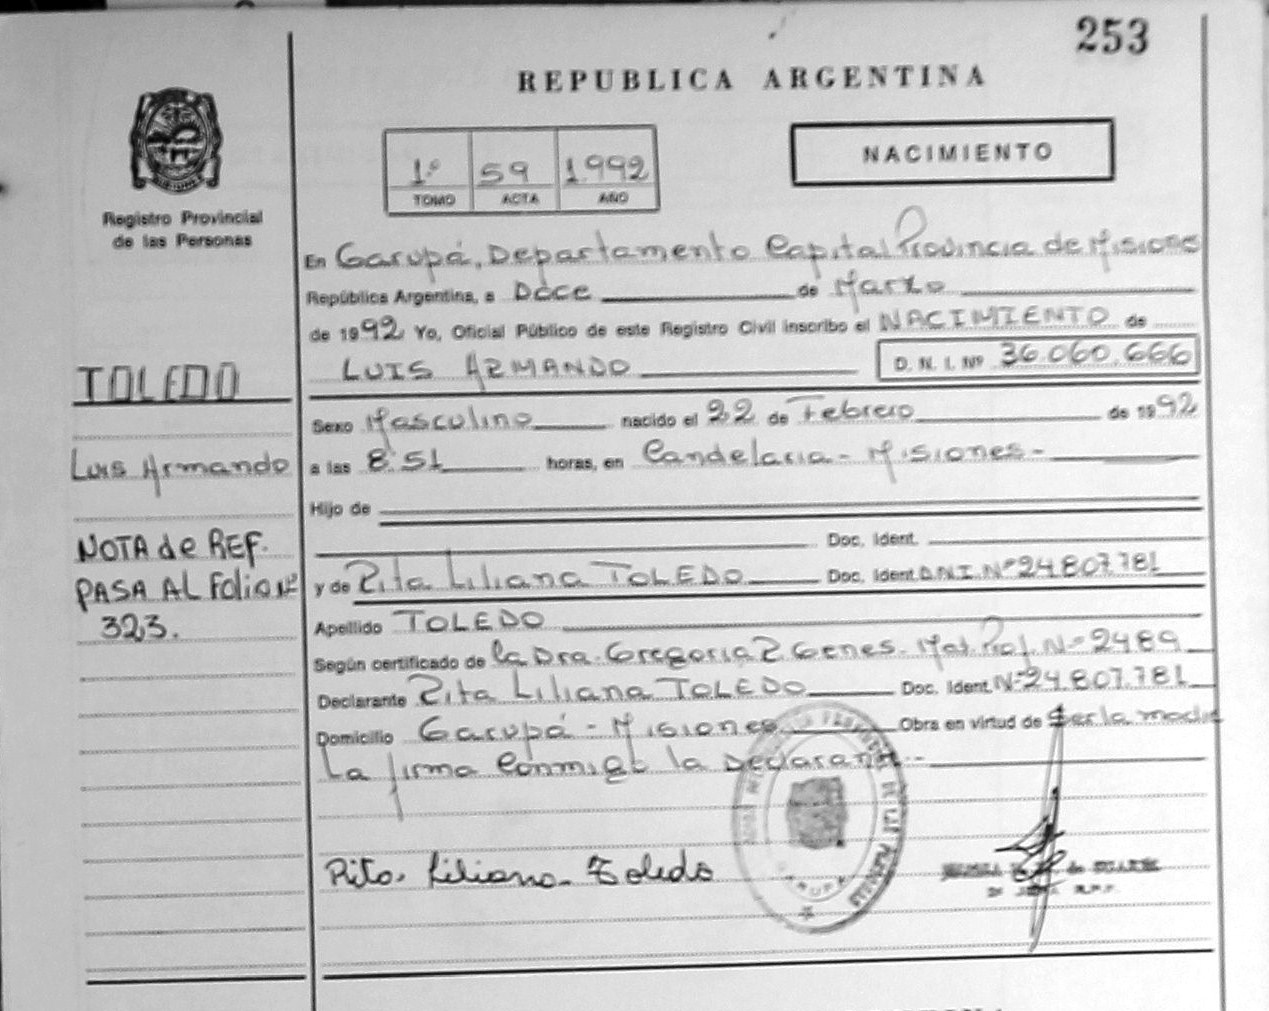 253
REPUBLICA ARGENTINA
NACIMIENTO
1º 59 1.992
TOMO ACTA AÑO
Registro Provincial
de las Personas
En Garupá, Departamento Capital Provincia de Misiones
República Argentina, a Doce de Marzo
de 1992 Yo, Oficial Público de este Registro Civil inscribo el NACIMIENTO de
LUIS ARMANDO D. N. I. Nº 36.060.666
TOLEDO
Sexo Masculino nacido el 22 de Febrero de 1992
Luis Armando
a las 8'51 horas, en Candelaria - Misiones -
Hijo de
NOTA de REF.
PASA AL Folio Nº
323.
Doc. Ident.
y de Rita Liliana TOLEDO Doc. Ident. D.N.I. Nº 24.807.781
Apellido TOLEDO
Según certificado de la Dra. Gregoria Z. Genes. Mat. Prof. Nº 2489
Declarante Rita Liliana TOLEDO Doc. Ident. Nº 24.807.781
Domicilio Garupá - Misiones Obra en virtud de Ser la madre
La firma conmigo la Declarante.-
Rita. Liliana. Toledo
GARUPA